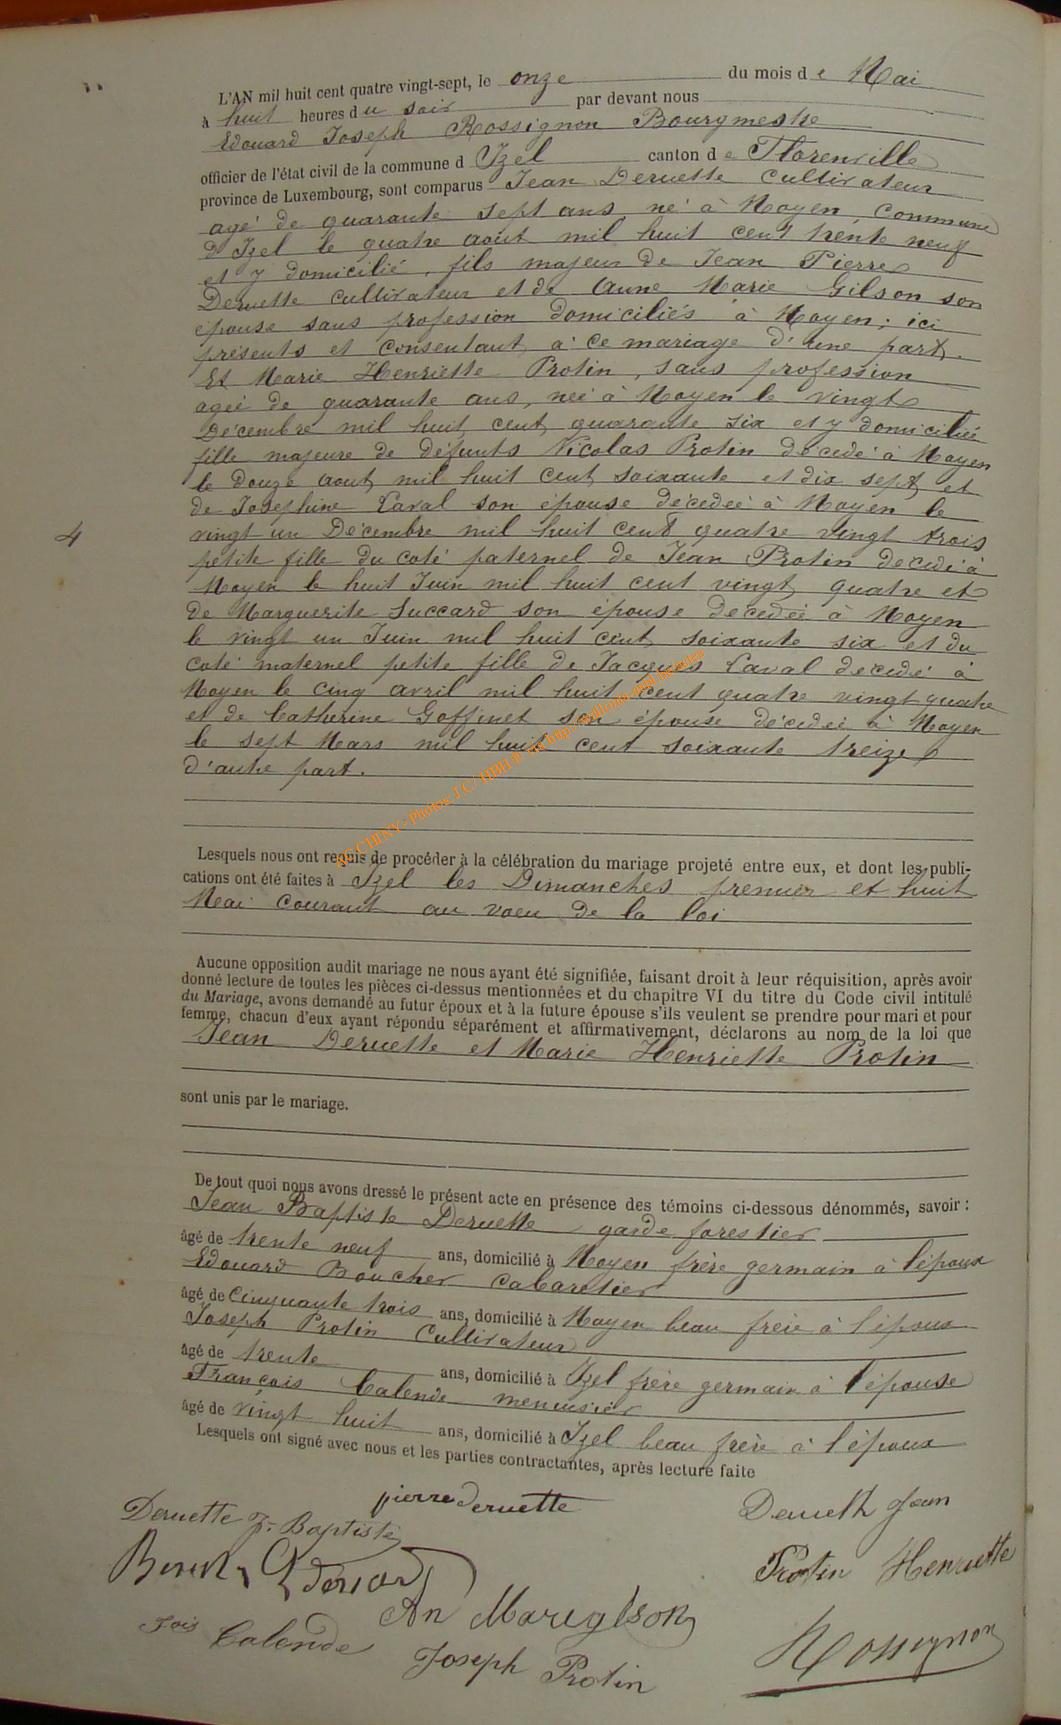 L'AN mil huit cent quatre vingt-sept, le onze du mois de Mai
à huit heures du soir par devant nous
Edouard Joseph Rossignon Bourgmestre
officier de l'état civil de la commune d Izel canton de Florenville
province de Luxembourg, sont comparus Jean Deruette cultivateur
agé de quarante sept ans né à Moyen, commune
d'Izel le quatre aout mil huit cent trente neuf
et y domicilié, fils majeur de Jean Pierre
Deruette cultivateur et de Anne Marie Gilson son
épouse sans profession domiciliés à Moyen; ici
présents et consentant à ce mariage d'une part.
Et Marie Henriette Protin, sans profession
agée de quarante ans, née à Moyen le vingt
Décembre mil huit cent quarante six et y domiciliée
fille majeure de défunts Nicolas Protin décédé à Moyen
le douze aout mil huit cent soixante et dix sept et
de Josephine Laval son épouse décédée à Moyen le
vingt un Décembre mil huit cent quatre vingt trois
4
petite fille du coté paternel de Jean Protin décédé à
Moyen le huit Juin mil huit cent vingt quatre et
de Marguerite Succard son épouse décédée à Moyen
le vingt un Juin mil huit cent soixante six et du
coté maternel petite fille de Jacques Laval décédé à
Moyen le cinq avril mil huit cent quatre vingt quatre
et de Catherine Goffinet son épouse décédée à Moyen
le sept Mars mil huit cent soixante treize
d'autre part.
Lesquels nous ont requis de procéder à la célébration du mariage projeté entre eux, et dont les publi-
cations ont été faites à Izel les Dimanches premier et huit
Mai courant au voeu de la loi
Aucune opposition audit mariage ne nous ayant été signifiée, faisant droit à leur réquisition, après avoir
donné lecture de toutes les pièces ci-dessus mentionnées et du chapitre VI du titre du Code civil intitulé
du Mariage, avons demandé au futur époux et à la future épouse s'ils veulent se prendre pour mari et pour
femme, chacun d'eux ayant répondu séparément et affirmativement, déclarons au nom de la loi que
Jean Deruette et Marie Henriette Protin
sont unis par le mariage.
De tout quoi nous avons dressé le présent acte en présence des témoins ci-dessous dénommés, savoir :
Jean Baptiste Deruette garde forestier
âgé de trente neuf ans, domicilié à Moyen frère germain à l'époux
Edouard Boucher cabaretier
âgé de cinquante trois ans, domicilié à Moyen beau frère à l'époux
Joseph Protin Cultivateur
âgé de trente ans, domicilié à Izel frère germain à l'épouse
François Calende menuisier
âgé de vingt huit ans, domicilié à Izel beau frère à l'époux
Lesquels ont signé avec nous et les parties contractantes, après lecture faite
pierre deruette
Deruette J. Baptiste
Deruette Jean
Protin Henriette
An Marie gilson
Calende
Joseph Protin
Rossignon